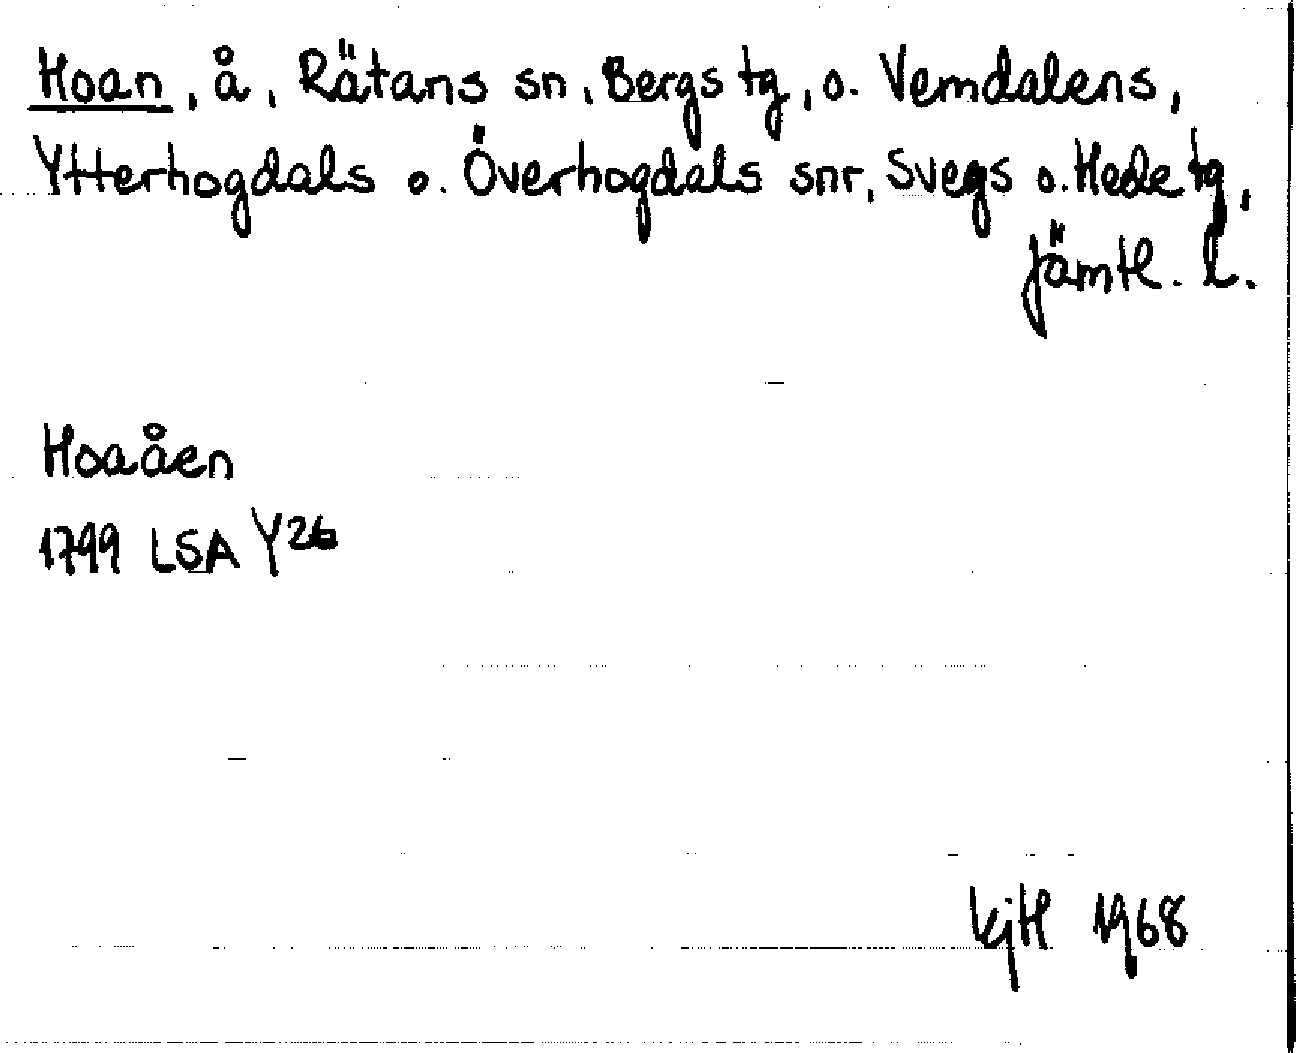 Hoan, å, Rätans sn, Bergs tg, o. Vemdalens,
Ytterhogdals o. Överhogdals snr, Svegs o. Hede tg,
Jämtl. l.
Hoaåen
1799 LSA Y26
KjH 1968